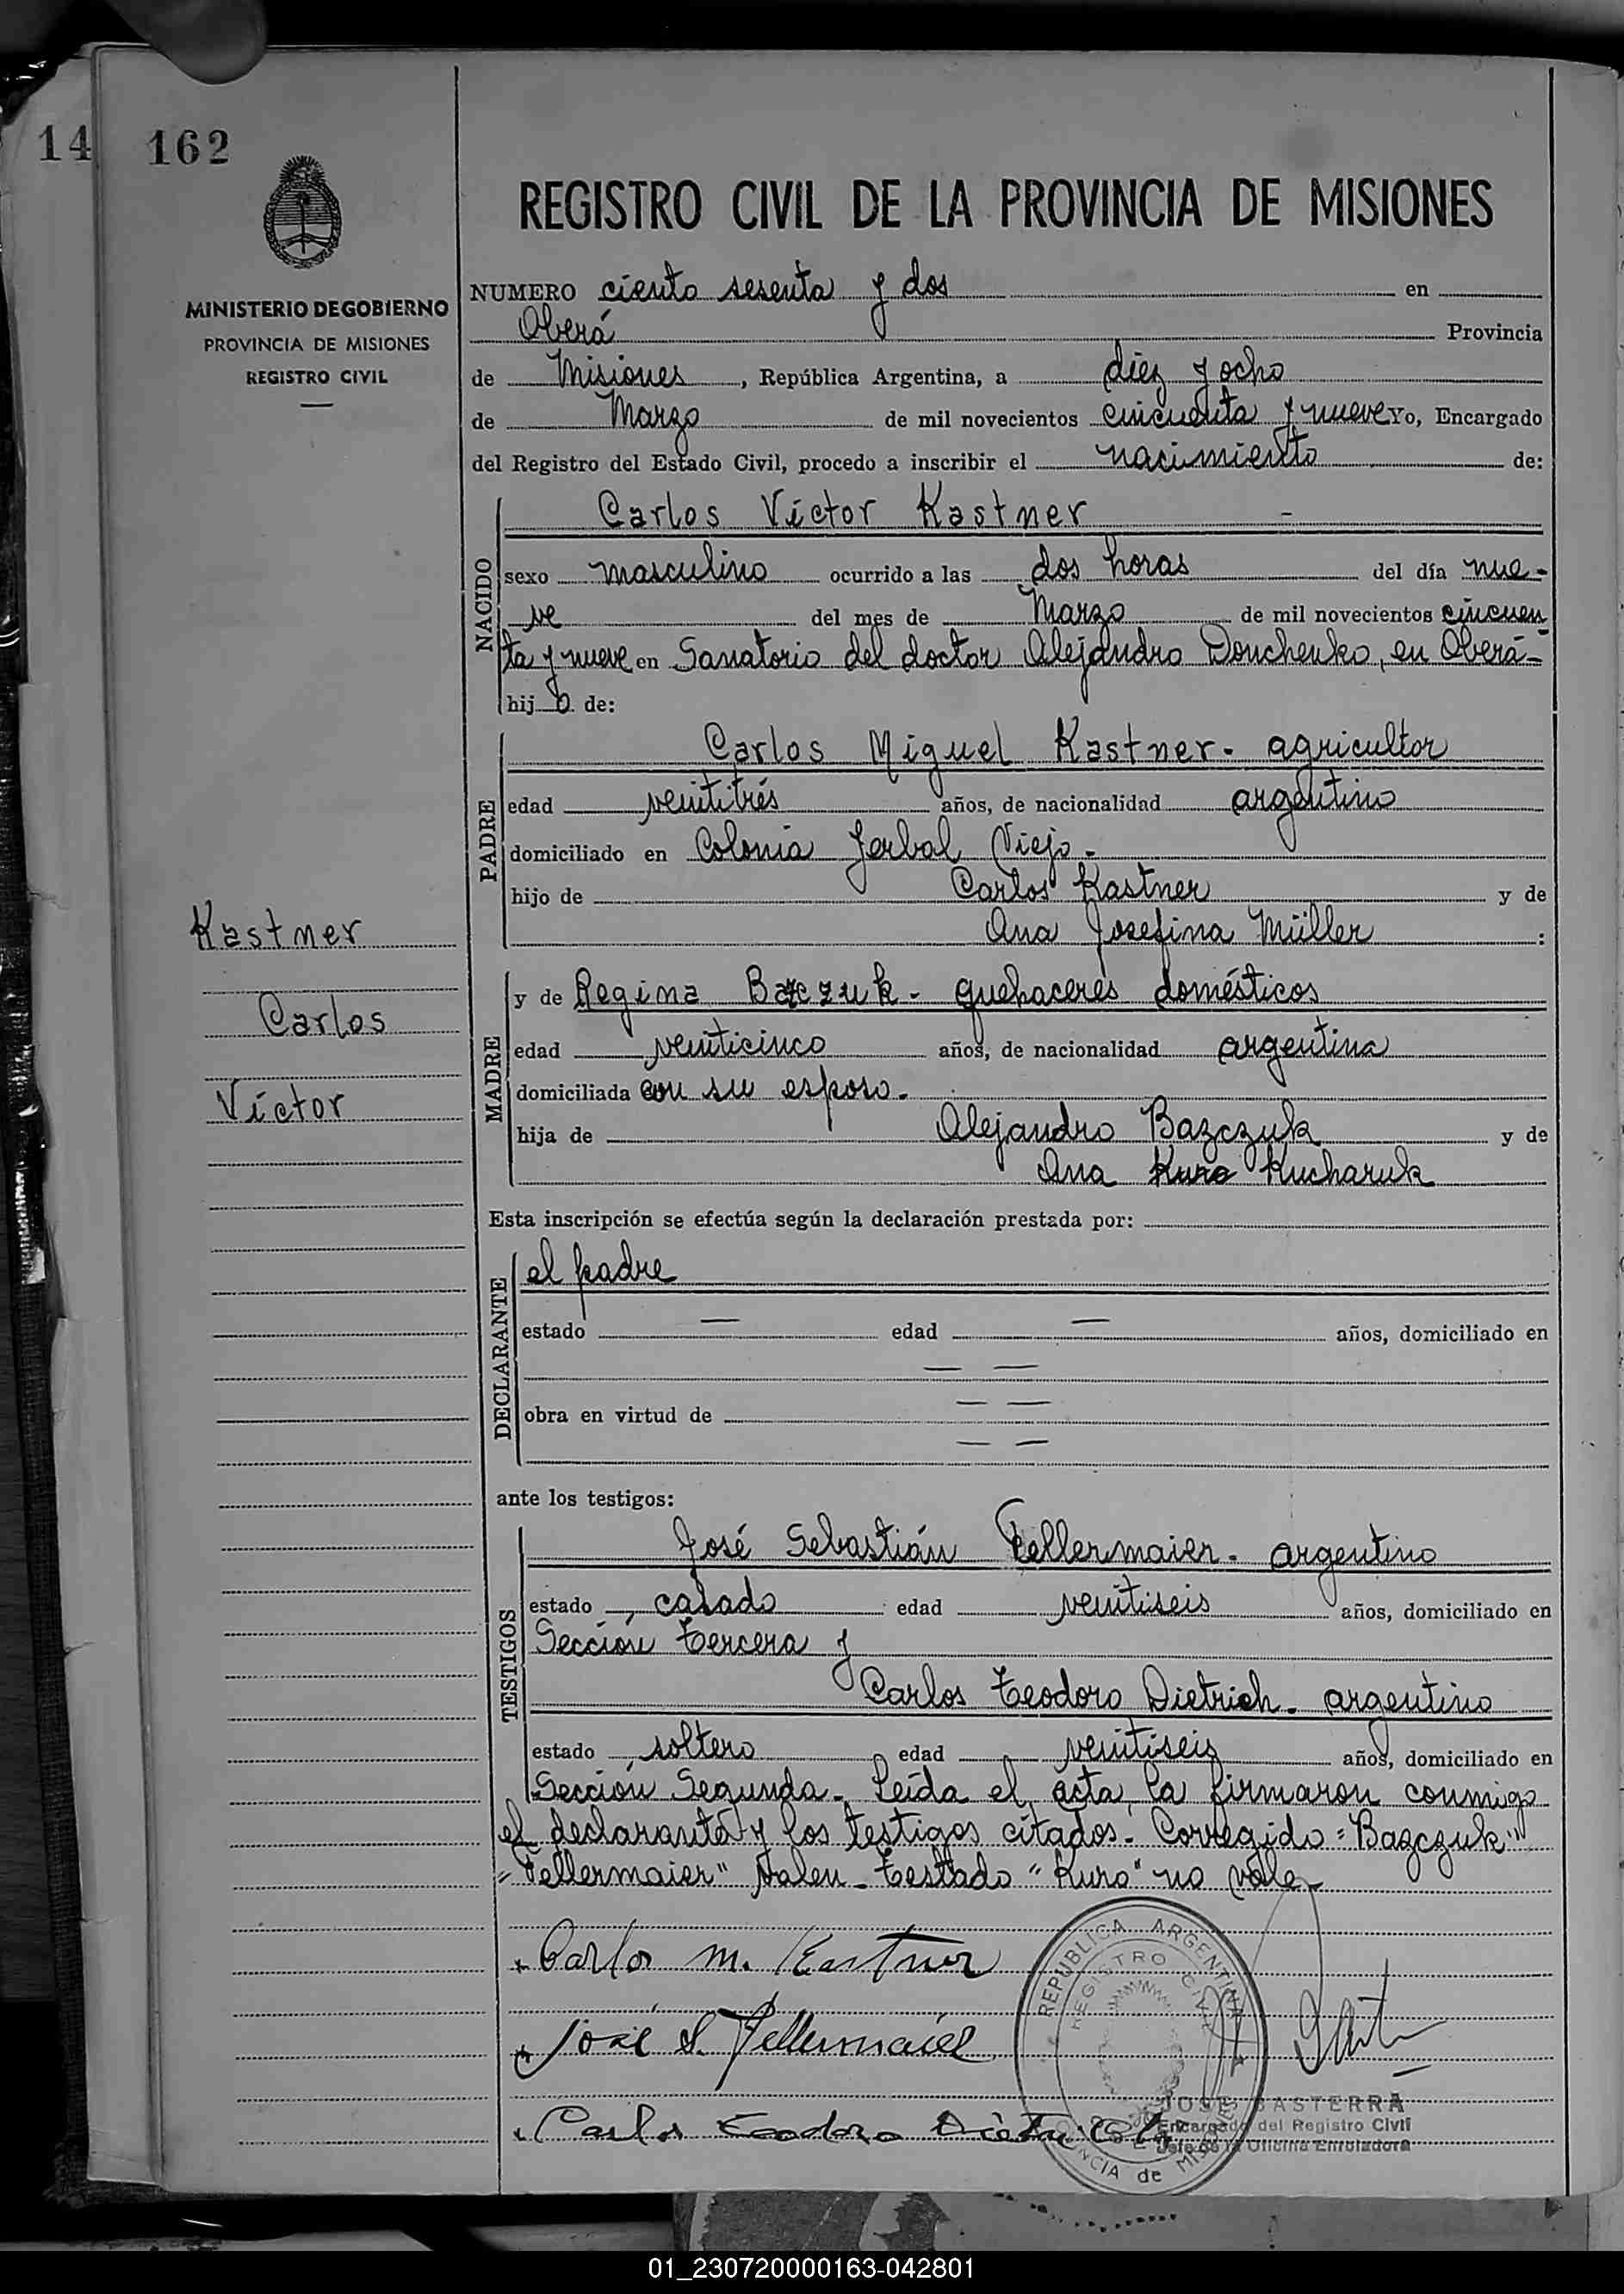 14
162
REGISTRO CIVIL DE LA PROVINCIA DE MISIONES
MINISTERIO DE GOBIERNO
PROVINCIA DE MISIONES
REGISTRO CIVIL
NUMERO ciento sesenta y dos en
Oberá Provincia
de Misiones, República Argentina, a diez y ocho
de Marzo de mil novecientos cincuenta y nueve Yo, Encargado
del Registro del Estado Civil, procedo a inscribir el nacimiento de:
NACIDO
Carlos Víctor Kastner -
sexo masculino ocurrido a las dos horas del día nue-
ve del mes de Marzo de mil novecientos cincuen
ta y nueve en Sanatorio del doctor Alejandro Donchenko, en Oberá-
hijo de:
PADRE
Carlos Miguel Kastner- agricultor
edad veintitrés años, de nacionalidad argentino
domiciliado en Colonia Yerbal Viejo-
hijo de Carlos Kastner y de
Ana Josefina Müller :
Kastner
Carlos
Víctor
MADRE
y de Regina Bazczuk- quehaceres domésticos
edad veinticinco años, de nacionalidad argentina
domiciliada con su esposo.
hija de Alejandro Bazczuk y de
Ana Kuro Kucharuk
Esta inscripción se efectúa según la declaración prestada por:
DECLARANTE
el padre
estado — edad — años, domiciliado en
— —
obra en virtud de — —
— —
ante los testigos:
TESTIGOS
José Sebastián Fellermaier- argentino
estado casado edad veintiseis años, domiciliado en
Sección tercera y
Carlos Teodoro Dietrich- argentino
estado soltero edad veintiseis años, domiciliado en
Sección Segunda- Leída el acta, la firmaron conmigo
el declarante y los testigos citados- Corregido "Bazczuk"
"Fellermaier" valen- Testado "Kuro" no vale-
Carlos M. Kastner
José S. Fellermaier
Carlos Teodoro Dietrich
REPUBLICA ARGENTINA
REGISTRO CIVIL
PROVINCIA de MISIONES
JOSE BASTERRA
Encargado del Registro Civil
Jefe de la Oficina Enroladora
01_230720000163-042801